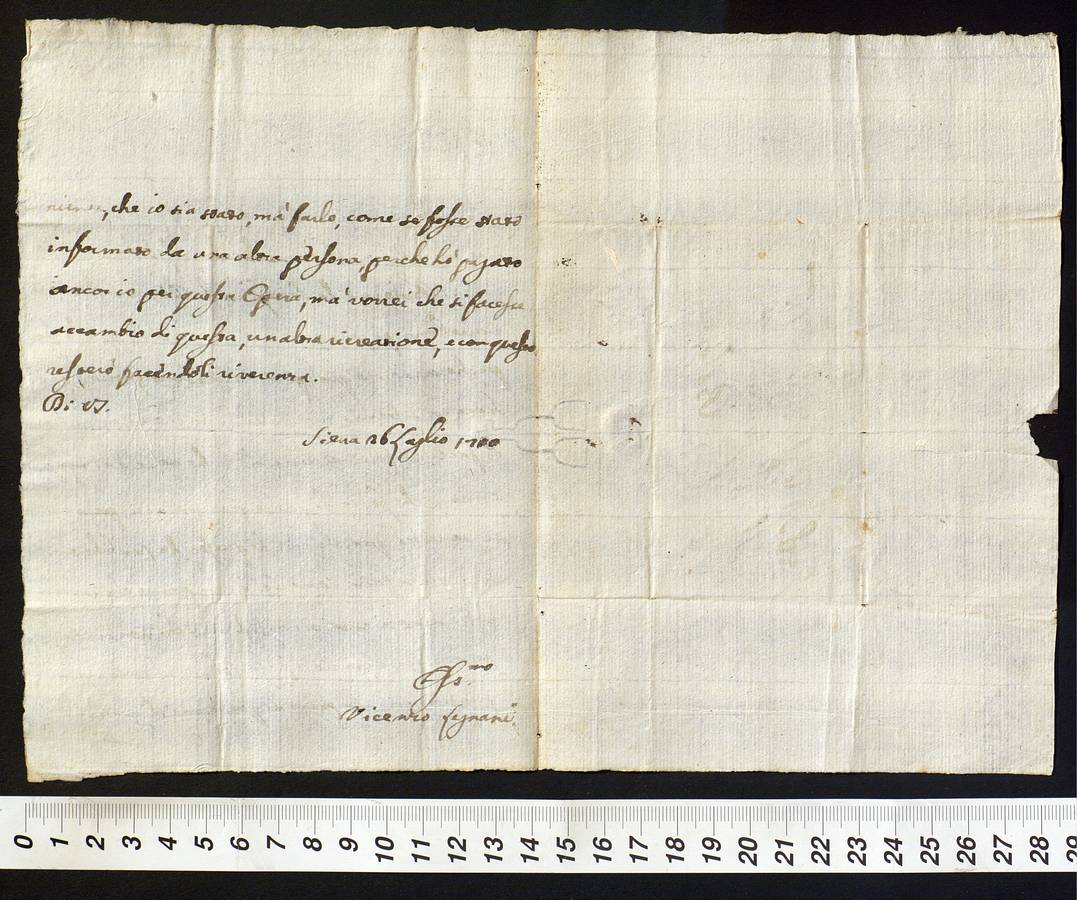 che io sia stato, mà farlo, come se fosse stato
informato da una altra persona, perche hò pagato
ancor io per questa Opera, mà vorrei che si facesse
accambio di questa, un altra ricreatione, e con questo
resterò facendoli riverenza.
Di VS.
Siena 26 Luglio 1700
Vicenzo
0 1 2 3 4 5 6 7 8 9 10 11 12 13 14 15 16 17 18 19 20 21 22 23 24 25 26 27 28 29